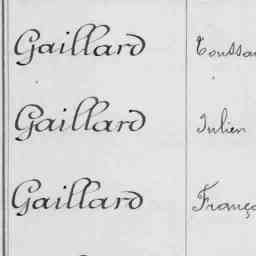 Gaillard Toussai
Gaillard Julien
Gaillard Franço